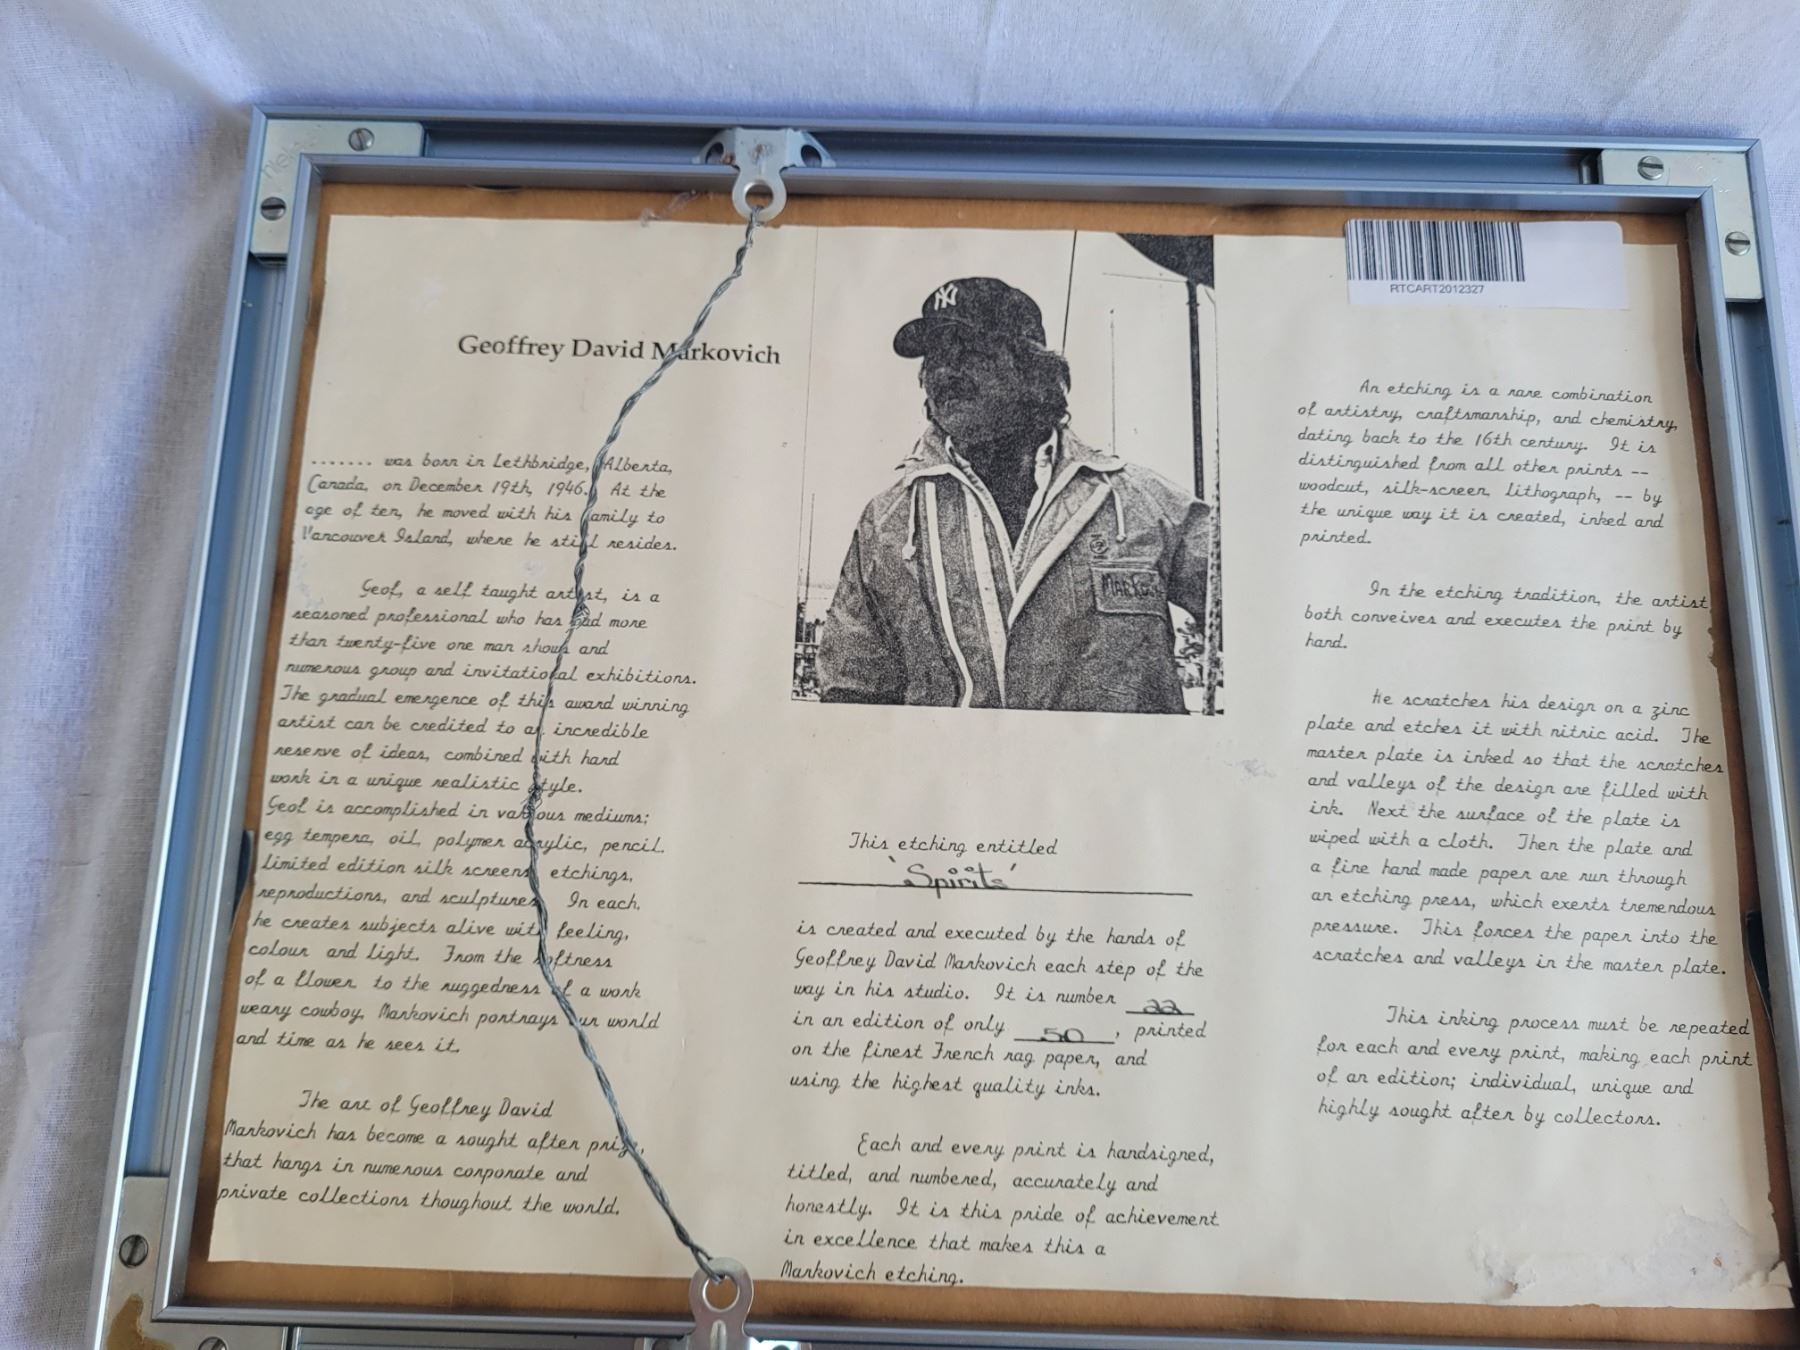 Geoffrey David Markovich
....... was born in Lethbridge, Alberta,
Canada, on December 19th, 1946. At the
age of ten, he moved with his family to
Vancouver Island, where he still resides.
Geof, a self taught artist, is a
seasoned professional who has had more
than twenty-five one man shows and
numerous group and invitational exhibitions.
The gradual emergence of this award winning
artist can be credited to an incredible
reserve of ideas, combined with hard
work in a unique realistic style.
Geof is accomplished in various mediums;
egg tempera, oil, polymer acrylic, pencil,
limited edition silk screens, etchings,
reproductions, and sculptures. In each,
he creates subjects alive with feeling,
colour and light. From the softness
of a flower to the ruggedness of a work
weary cowboy, Markovich portrays our world
and time as he sees it.
The art of Geoffrey David
Markovich has become a sought after prize,
that hangs in numerous corporate and
private collections thoughout the world.
NY
This etching entitled
'Spirits'
is created and executed by the hands of
Geoffrey David Markovich each step of the
way in his studio. It is number 22
in an edition of only 50, printed
on the finest French rag paper, and
using the highest quality inks.
Each and every print is handsigned,
titled, and numbered, accurately and
honestly. It is this pride of achievement
in excellence that makes this a
Markovich etching.
RTCART2012327
An etching is a rare combination
of artistry, craftsmanship, and chemistry,
dating back to the 16th century. It is
distinguished from all other prints --
woodcut, silk-screen, lithograph, -- by
the unique way it is created, inked and
printed.
In the etching tradition, the artist
both conveives and executes the print by
hand.
He scratches his design on a zinc
plate and etches it with nitric acid. The
master plate is inked so that the scratches
and valleys of the design are filled with
ink. Next the surface of the plate is
wiped with a cloth. Then the plate and
a fine hand made paper are run through
an etching press, which exerts tremendous
pressure. This forces the paper into the
scratches and valleys in the master plate.
This inking process must be repeated
for each and every print, making each print
of an edition; individual, unique and
highly sought after by collectors.